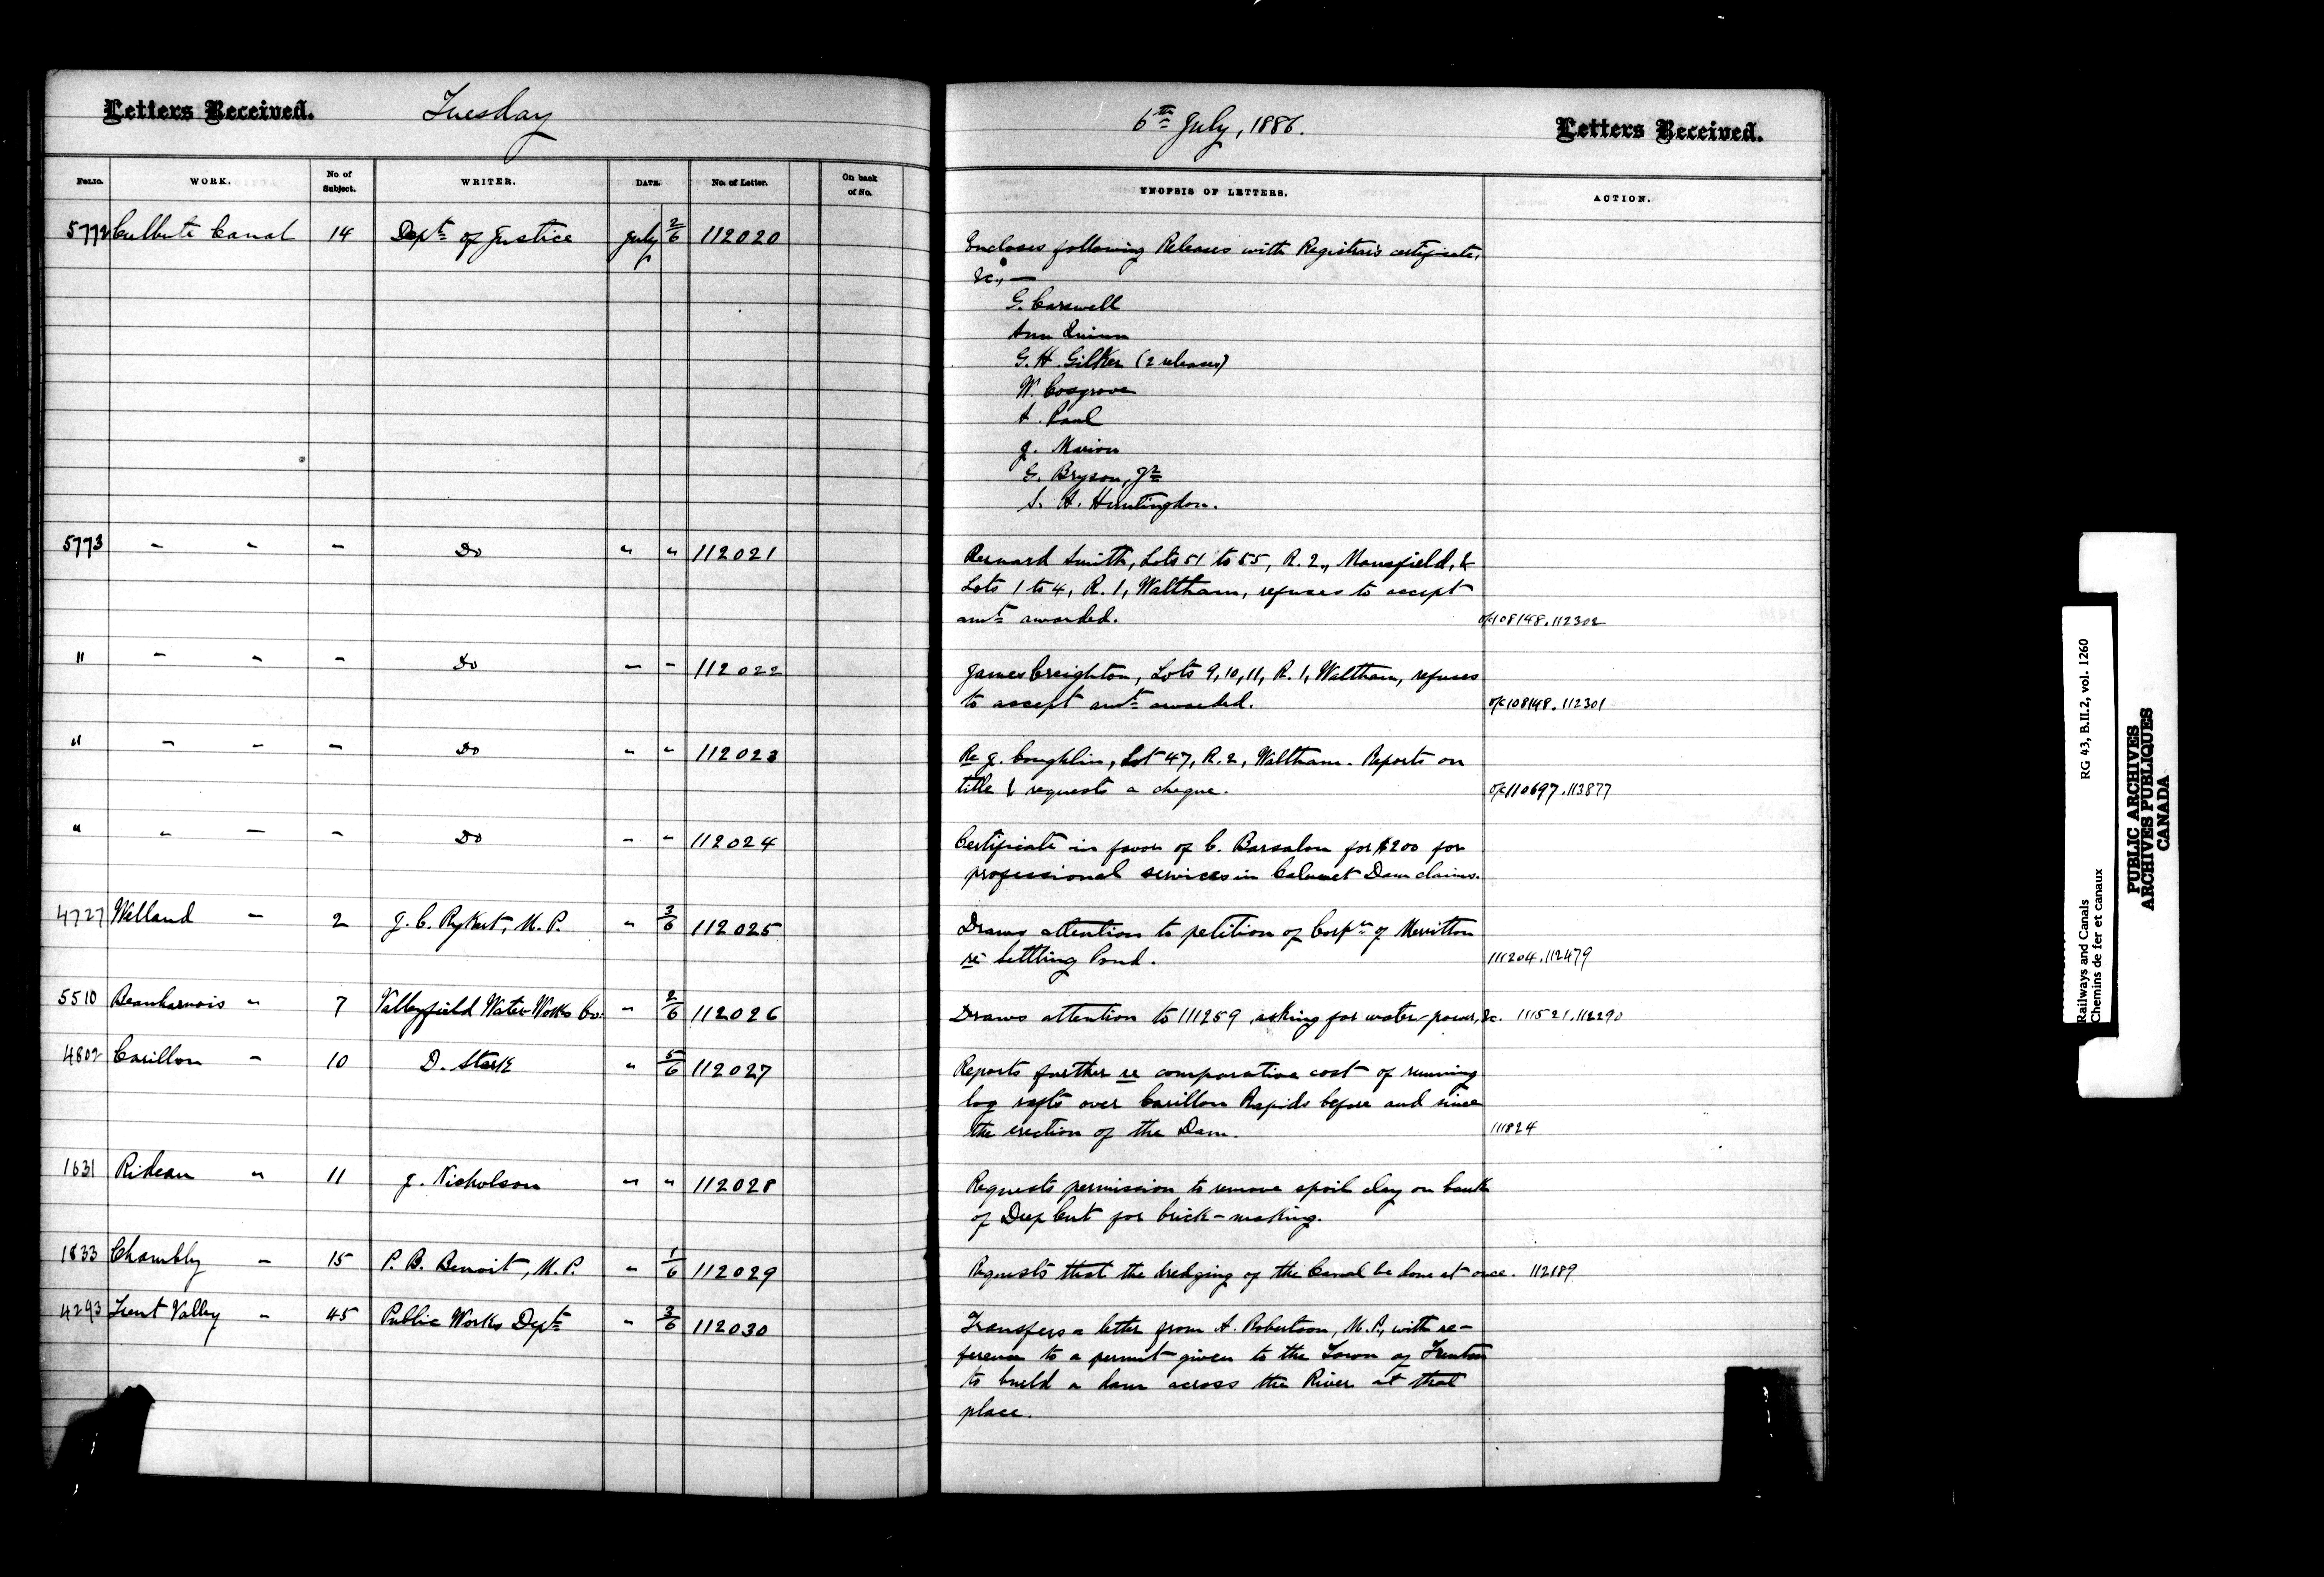 Letters Received. Tuesday
6th July, 1886. Letters Received.
FOLIO. WORK. No of Subject. WRITER. DATE. No. of Letter. On back of No. SYNOPSIS OF LETTERS. ACTION.
5772 Culbute Canal 14 Dept of Justice July 2/6 112020 Encloses following Releases with Registrar's certificate,
&c., —
G. Carswell
Ann Quinn
G. H. Gilker (2 releases)
W. Cosgrove
A. Paul
J. Marion
G. Bryson, Jr
S. A. Huntingdon.
5773 " " " Do " " 112021 Bernard Smith, Lots 51 to 55, R. 2., Mansfield, &
Lots 1 to 4, R. 1, Waltham, refuses to accept
amt awarded. o/c 108148. 112302
" " " " Do " " 112022 James Creighton, Lots 9, 10, 11, R. 1, Waltham, refuses
to accept amt awarded. o/c 108148. 112301
" " " " Do " " 112023 Re J. Coughlin, Lot 47, R. 2, Waltham. Reports on
title & requests a cheque. o/c 110697. 113877
" " " " Do " " 112024 Certificate in favor of C. Barsalou for $200 for
professional services in Calumet Dam claims.
4727 Welland " 2 J. C. Rykert, M. P. " 3/6 112025 Draws attention to petition of Corpn of Merritton
re Settling Pond. 111204. 112479
5510 Beauharnois " 7 Valleyfield Water-Works Co. " 2/6 112026 Draws attention to 111259 asking for water-power, &c. 111521. 112290
4802 Carillon " 10 D. Stark " 5/6 112027 Reports further re comparative cost of running
log rafts over Carillon Rapids before and since
the erection of the Dam. 111824
1631 Rideau " 11 J. Nicholson " " 112028 Requests permission to remove spoil clay on bank
of Deep Cut for brick-making.
1833 Chambly " 15 P. B. Benoit, M. P. " 1/6 112029 Requests that the dredging of the Canal be done at once. 112189
4293 Trent Valley " 45 Public Works Dept " 3/6 112030 Transfers a letter from A. Robertson, M. P., with re-
ference to a permit given to the Town of Trenton
to build a dam across the River at that
place.
Railways and Canals RG 43, B.II.2, vol. 1260
Chemins de fer et canaux
PUBLIC ARCHIVES
ARCHIVES PUBLIQUES
CANADA